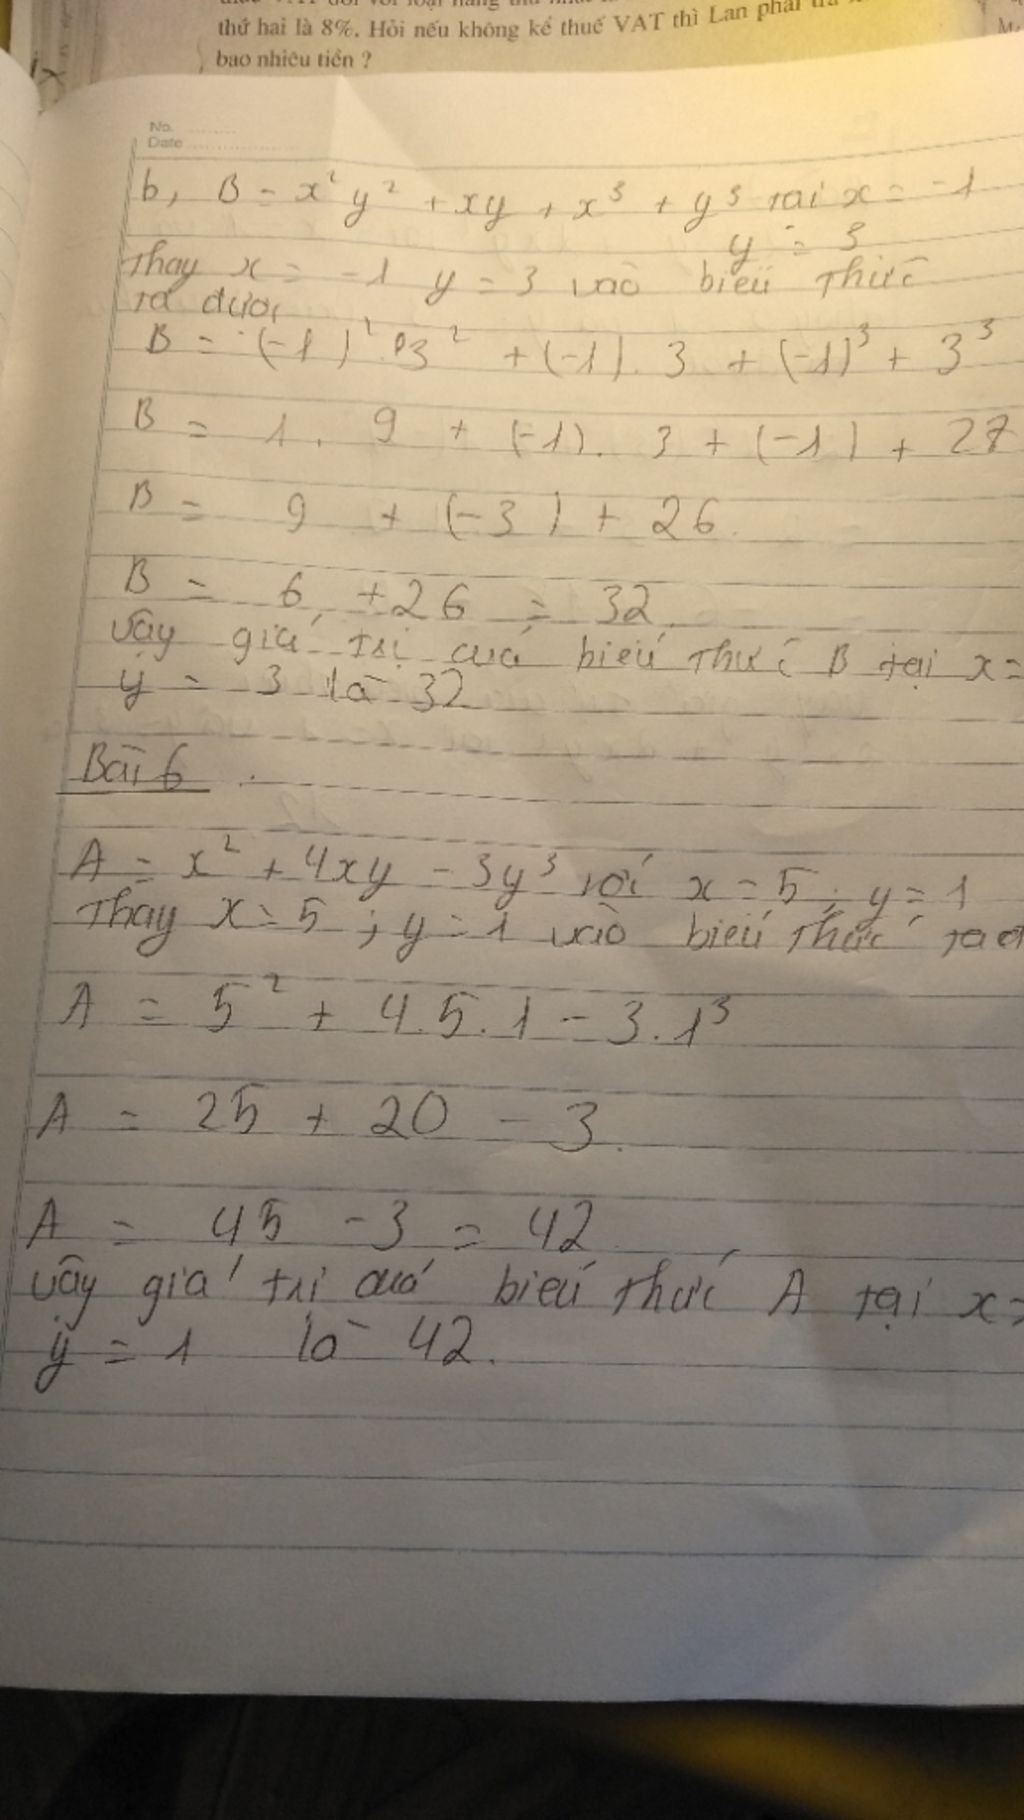 thứ hai là 8%. Hỏi nếu không kể thuế VAT thì Lan phải trả
bao nhiêu tiền ?
No.
Date
b, B = x² y² + xy + x³ + y³ tại x = -1
y = 3
Thay x = -1 y = 3 vào biểu thức
ta được
B = (-1)² . 3² + (-1) . 3 + (-1)³ + 3³
B = 1 . 9 + (-1) . 3 + (-1) + 27
B = 9 + (-3) + 26
B = 6 + 26 = 32
Vậy giá trị của biểu thức B tại x =
y = 3 là 32
Bài 6
A = x² + 4xy - 3y³ với x = 5 ; y = 1
Thay x = 5 ; y = 1 vào biểu thức ta
A = 5² + 4.5.1 - 3.1³
A = 25 + 20 - 3.
A = 45 - 3 = 42
Vậy giá trị của biểu thức A tại x =
y = 1 là 42.